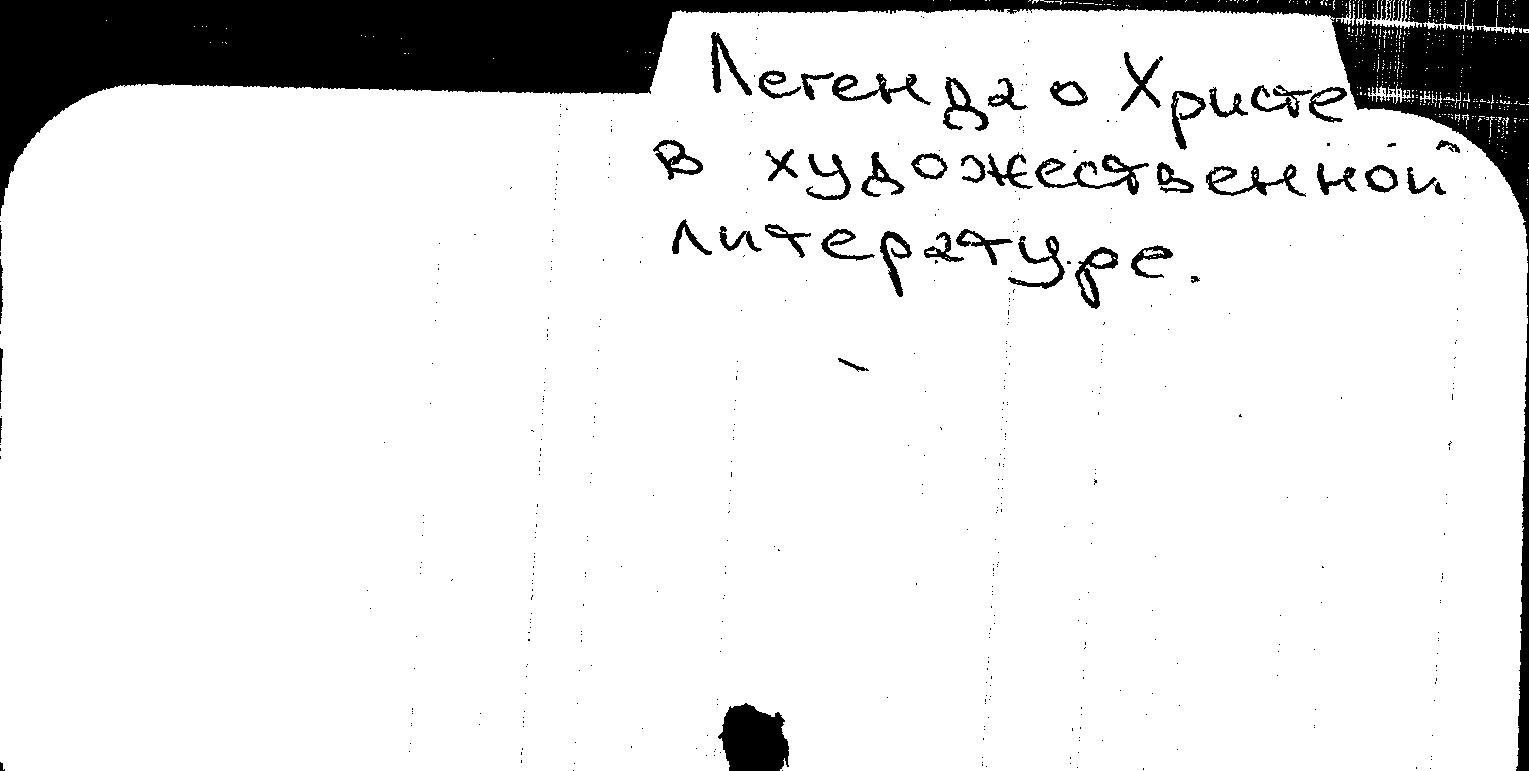 Легенда о Христе
в художественной
литературе.